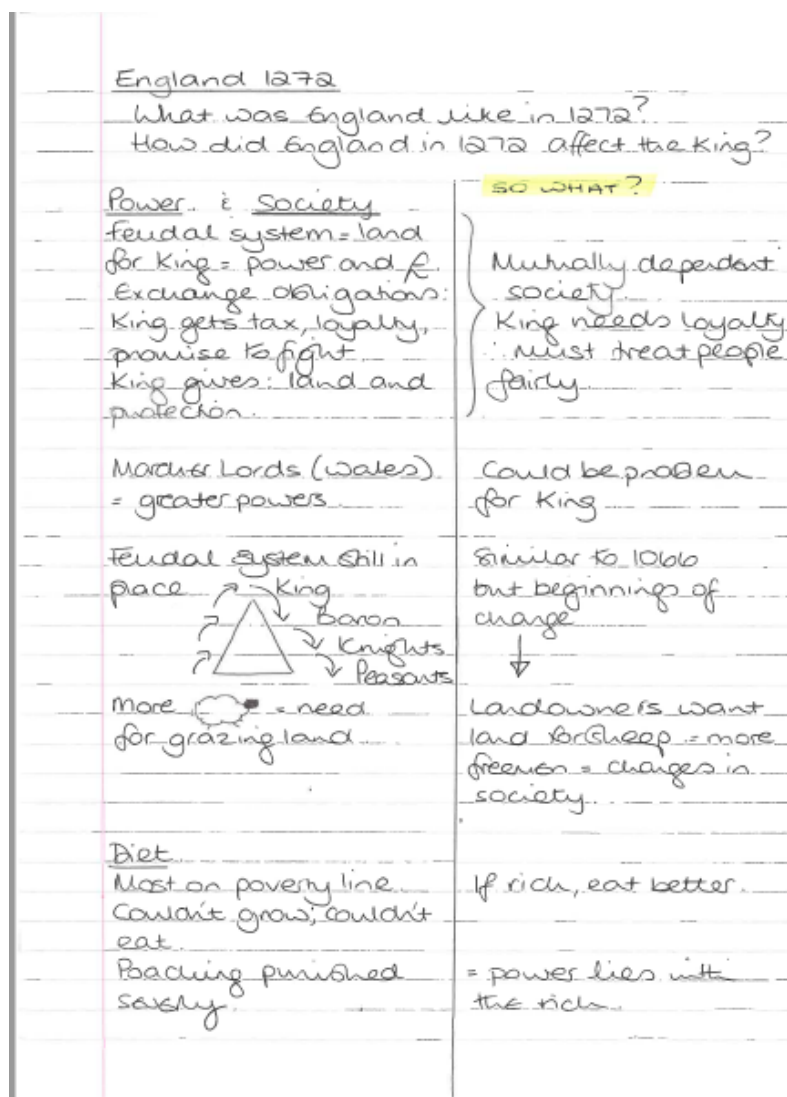 England 1272
What was England like in 1272?
How did England in 1272 affect the King?
Power & Society
feudal system = land
for King = power and £.
Exchange obligations:
King gets tax, loyalty,
promise to fight
King gives: land and
protection.
Marcher Lords (Wales)
= greater powers.
Feudal system still in
place
King
Baron
Knights
Peasants
more = need
for grazing land
Diet
Most on poverty line.
Couldn't grow; couldn't
eat.
Poaching punished
severly.
SO WHAT?
Mutually dependent
society.
King needs loyalty
∴ must treat people
fairly.
Could be problem
for King
Similar to 1066
but beginnings of
change
Landowners want
land for sheep = more
freemen = changes in
society.
If rich, eat better.
= power lies with
the rich.